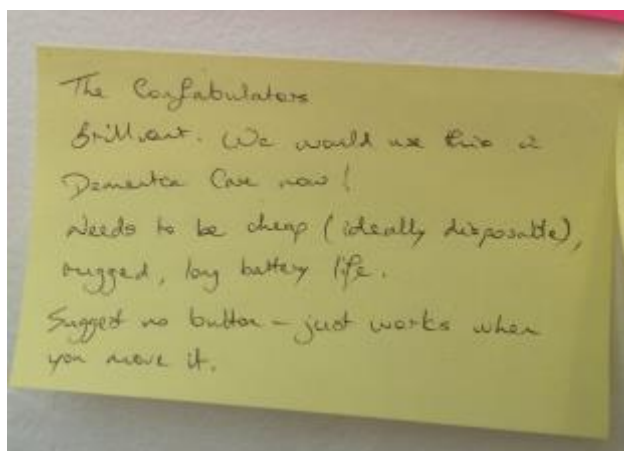 The Confabulators
Brilliant. We would use this in
Dementia Care now!
Needs to be cheap (ideally disposable),
rugged, long battery life.
Suggest no button – just works when
you move it.